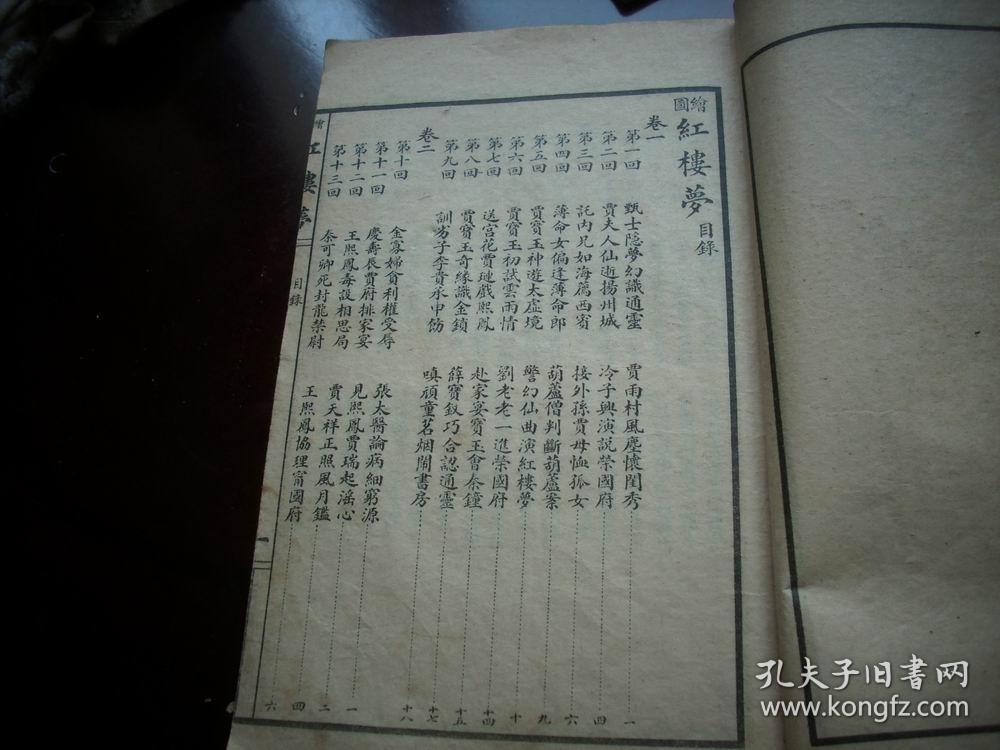 繪圖紅樓夢目錄
卷一
第一回 甄士隱夢幻識通靈 賈雨村風塵懷閨秀 一
第二回 賈夫人仙逝揚州城 冷子興演說榮國府 四
第三回 託內兄如海薦西賓 接外孫賈母恤孤女 六
第四回 薄命女偏逢薄命郎 葫蘆僧判斷葫蘆案 九
第五回 賈寶玉神遊太虛境 警幻仙曲演紅樓夢 十
第六回 賈寶玉初試雲雨情 劉老老一進榮國府 十四
第七回 送宮花賈璉戲熙鳳 赴家宴寶玉會秦鐘 十五
第八回 賈寶玉奇緣識金鎖 薛寶釵巧合認通靈 十七
第九回 訓劣子李貴承申飭 嗔頑童茗烟鬧書房 十八
卷二
第十回 金寡婦貪利權受辱 張太醫論病細窮源 一
第十一回 慶壽辰賈府排家宴 見熙鳳賈瑞起淫心 二
第十二回 王熙鳳毒設相思局 賈天祥正照風月鑑 四
第十三回 秦可卿死封龍禁尉 王熙鳳協理甯國府 六
繪 紅樓夢 目錄 一
孔夫子旧書网
www.kongfz.com